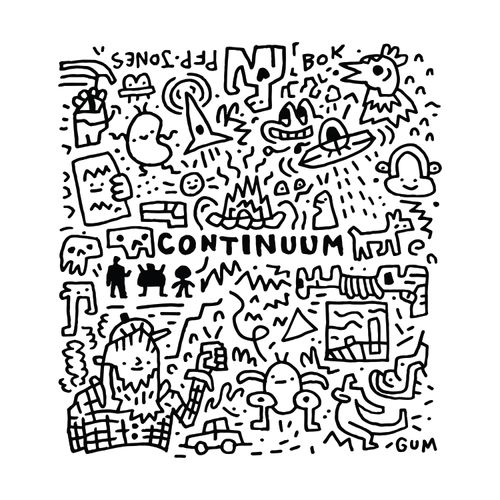 PEP·JONES
BOK
CONTINUUM
GUM